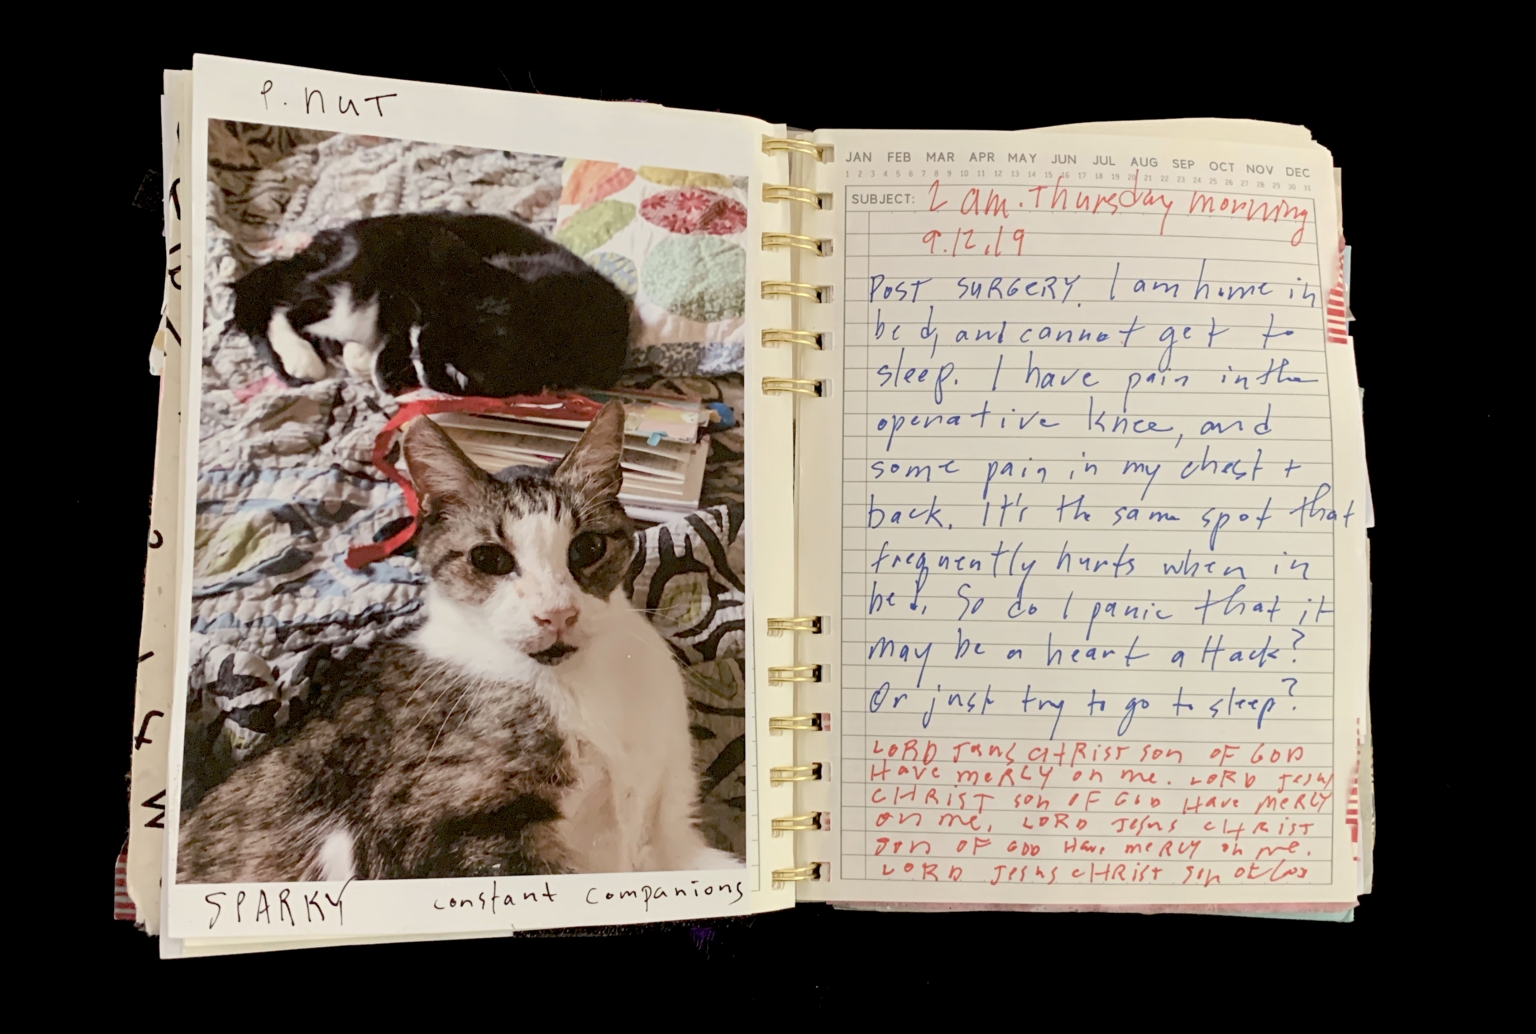 P. NUT
SPARKY constant companions
JAN FEB MAR APR MAY JUN JUL AUG SEP OCT NOV DEC
1 2 3 4 5 6 7 8 9 10 11 12 13 14 15 16 17 18 19 20 21 22 23 24 25 26 27 28 29 30 31
SUBJECT: 2 am. Thursday morning
9.12.19
POST SURGERY. I am home in
bed, and cannot get to
sleep. I have pain in the
operative knee, and
some pain in my chest +
back. It's the same spot that
frequently hurts when in
bed. So do I panic that it
may be a heart attack?
Or just try to go to sleep?
LORD Jesus CHRIST son OF GOD
Have meRCY on me. LORD Jesus
CHRIST son OF GOD Have meRCY
on me. LORD Jesus CHRIST
son OF GOD Have meRCY on me.
LORD Jesus CHRIST son of God